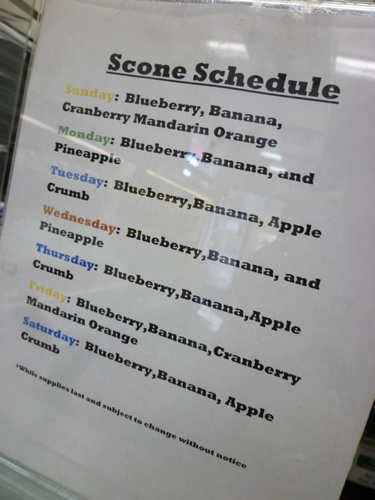 Scone Schedule
Sunday: Blueberry, Banana,
Cranberry Mandarin Orange
Monday: Blueberry,Banana, and
Pineapple
Tuesday: Blueberry,Banana, Apple
Crumb
Wednesday: Blueberry,Banana, and
Pineapple
Thursday: Blueberry,Banana,Apple
Crumb
Friday: Blueberry,Banana,Cranberry
Mandarin Orange
Saturday: Blueberry,Banana, Apple
Crumb
*While supplies last and subject to change without notice